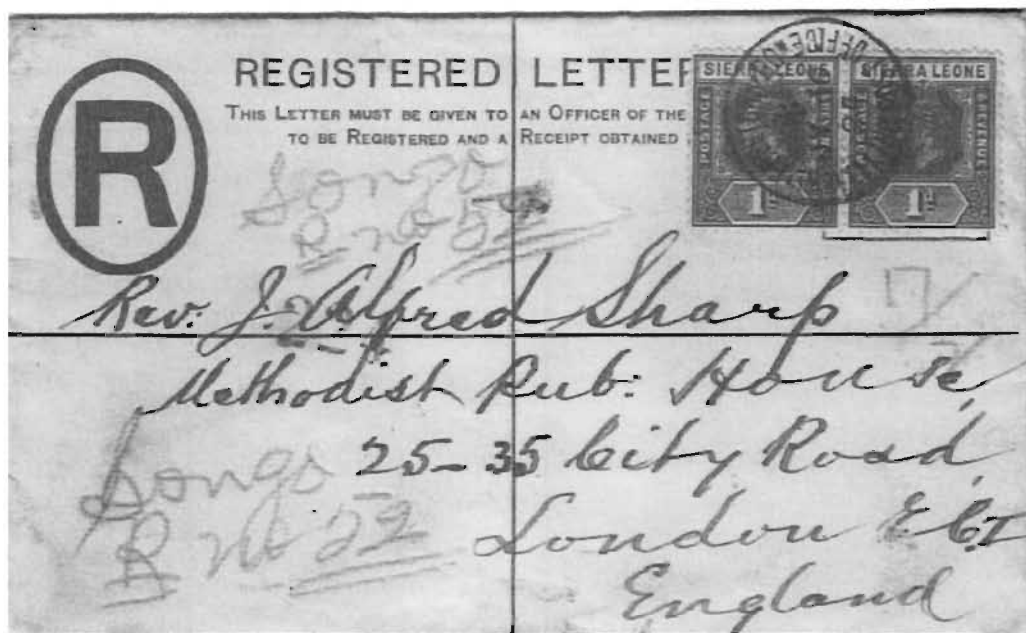 R
REGISTERED LETTER
THIS LETTER MUST BE GIVEN TO AN OFFICER OF THE
TO BE REGISTERED AND A RECEIPT OBTAINED
SIERRA LEONE
POSTAGE
1d
SIERRA LEONE
POSTAGE
REVENUE
1d
Songo
R no
Rev. J. Alfred Sharp
Methodist Pub. House,
25-35 City Road,
Songo
R no 22
London E.C.1
England